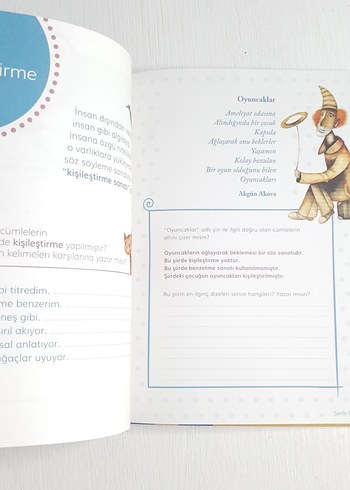 irme
İnsan dışındaki
insan gibi algılen
insana özgü nitelik
o varlıklara yükle
söz söyleme sanatın
"kişileştirme sanatı"
cümlelerin
de kişileştirme yapılmıştır?
n kelimeleri karşılarına yazar mısın?
bi titredim.
me benzerim.
neş gibi.
ırıl akıyor.
sal anlatıyor.
ağaçlar uyuyor.
Oyuncaklar
Ameliyat odasına
Alındığında bir çocuk
Kapıda
Ağlayarak onu beklerler
Yaşamın
Kolay bozulan
Bir oyun olduğunu bilen
Oyuncakları
Akgün Akova
"Oyuncaklar" adlı şiir ile ilgili doğru olan cümlelerin
altını çizer misin?
Oyuncakların ağlayarak beklemesi bir söz sanatıdır.
Bu şiirde kişileştirme yoktur.
Bu şiirde benzetme sanatı kullanılmamıştır.
Şiirdeki çocuğun oyuncakları kişileştirilmiştir.
Bu şiirin en ilginç dizeleri sence hangileri? Yazar mısın?